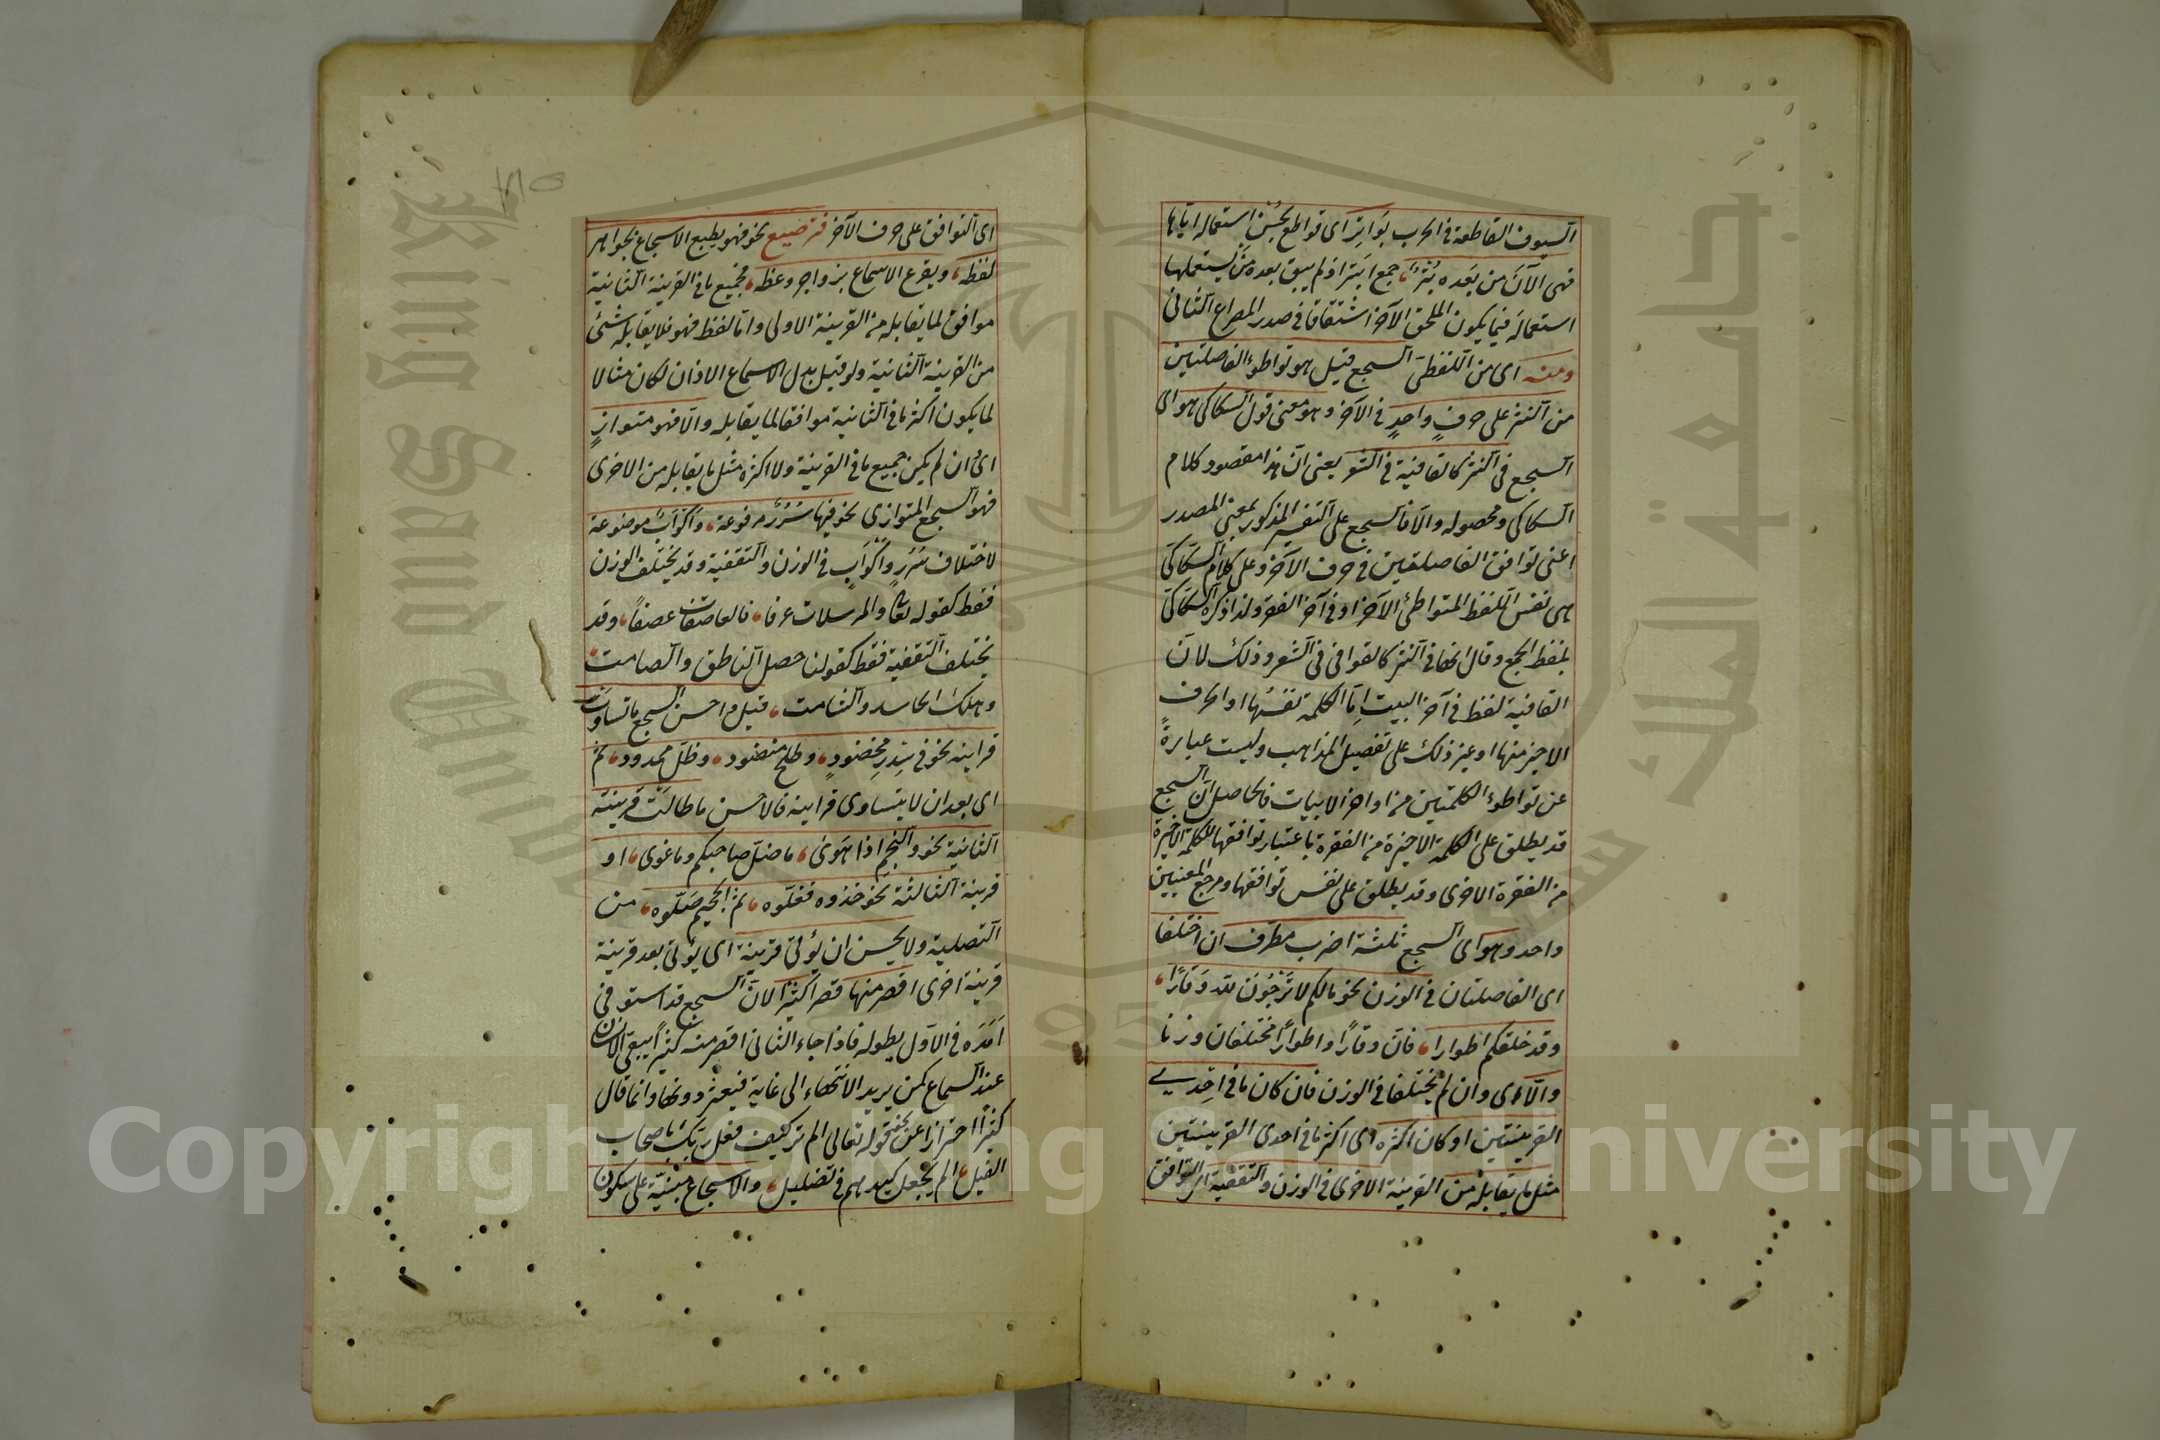 السيوف القاطعة في الحرب بواتر اى قواطع بحسن استعماله اياها
فهى الآن من بعده بتر جمع ابتر اذ لم يبق بعده من يستعملها
استعماله فيما يكون الملحق الآخر اشتقاقا في صدر المصراع الثانى
ومنه اى من اللفظى السجع قيل هو تواطؤ الفاصلتين
من النثر على حرف واحد في الآخر وهو معنى قول السكاكى هو اى
السجع في النثر كالقافية في الشعر يعنى ان هذا مقصود كلام
السكاكى ومحصوله والا فالسجع على التفسير المذكور بمعنى المصدر
اعنى توافق الفاصلتين في حرف الآخر وعلى كلام السكاكى
هى نفس اللفظ المتواطئ الآخر او في آخر الفقر ولذا ذكره السكاكى
بلفظ الجمع وقال انها في النثر كالقوافى في الشعر وذلك لان
القافية لفظ في آخر البيت اما الكلمة نفسها او الحرف
الاخير منها او غير ذلك على تفصيل المذاهب وليست عبارة
عن تواطؤ الكلمتين من اواخر الابيات فالحاصل ان السجع
قد يطلق على الكلمة الاخيرة من الفقرة باعتبار توافقها للكلمة الاخيرة
من الفقرة الاخرى وقد يطلق على نفس توافقها ومرجع المعنيين
واحد وهو اى السجع ثلثة اضرب مطرف ان اختلفا
اى الفاصلتان في الوزن نحو مالكم لا ترجون لله وقارا
وقد خلقكم اطوارا فان وقارا واطوارا مختلفان وزنا
والا اى وان لم يختلفا في الوزن فان كان ما في احدى
القرينتين او كان اكثره اى اكثر ما في احدى القرينتين
مثل ما يقابله من القرينة الاخرى في الوزن والتقفية اى التوافق
اى التوافق على حرف الآخر فترصيع نحو فهو يطبع الاسجاع بجواهر
لفظه ويقرع الاسماع بزواجر وعظه فجميع ما في القرينة الثانية
موافق لما يقابله من القرينة الاولى واما لفظ فهو فلا يقابله شئ
من القرينة الثانية ولو قيل بدل الاسماع الاذان لكان مثالا
لما يكون اكثر ما في الثانية موافقا لما يقابله والا فهو متواز
اى وان لم يكن جميع ما في القرينة ولا اكثره مثل ما يقابله من الاخرى
فهو السجع المتوازى نحو فيها سرر مرفوعة واكواب موضوعة
لاختلاف سرر واكواب في الوزن والتقفية وقد يختلف الوزن
فقط كقوله تعالى والمرسلات عرفا فالعاصفات عصفا وقد
يختلف التقفية فقط كقولنا حصل الناطق والصامت
وهلك الحاسد والشامت قيل واحسن السجع ما تساوت
قراينه نحو في سدر مخضود وطلح منضود وظل ممدود ثم
اى بعد ان لا يتساوى قراينه فالاحسن ما طالت قرينته
الثانية نحو والنجم اذا هوى ما ضل صاحبكم وما غوى او
قرينة الثالثة نحو خذوه فغلوه ثم الجحيم صلوه من
التصلية ولا يحسن ان يؤتى قرينة اى يؤتى بعد قرينة
قرينة اخرى اقصر منها قصرا كثيرا لان السجع قد استوفى
امده في الاول بطوله فاذا جاء الثانى اقصر منه كثيرا يبقى الانسان
عند السماع كمن يريد الانتهاء الى غاية فيعثر دونها وانما قال
كثيرا احترازا عن نحو قوله تعالى الم تر كيف فعل ربك باصحاب
الفيل الم يجعل كيدهم في تضليل والاسجاع مبنية على سكون
جامعة الملك سعود
King Saud University
1957
Copyright © King Saud University